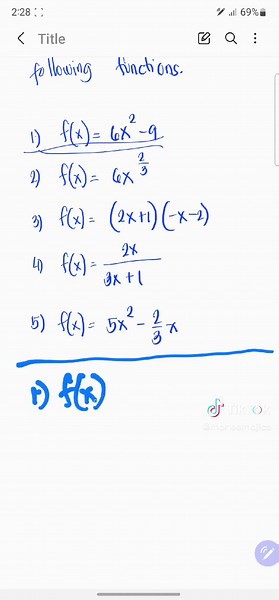 2:28
69%
Title
following functions.
1) f(x) = 6x² - 9
2) f(x) = 6x^(2/3)
3) f(x) = (2x+1)(-x-2)
4) f(x) = 2x/(3x+1)
5) f(x) = 5x² - 2/3 x
1) f(x)
TikTok